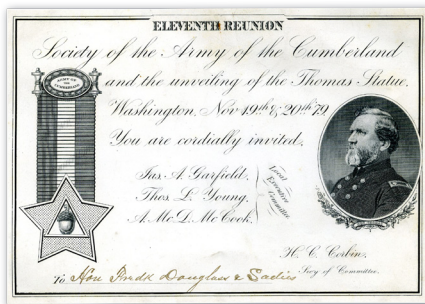 ELEVENTH REUNION
Society of the Army of the Cumberland
and the unveiling of the Thomas Statue,
Washington, Nov 19th & 20th 79
You are cordially invited.
Jas. A. Garfield,
Thos. L. Young,
A. Mc.D. Mc Cook,
Local
Executive
Committee
ARMY OF
THE
CUMBERLAND
H. C. Corbin,
Secy of Committee.
To Hon Fredk Douglass & Ladies